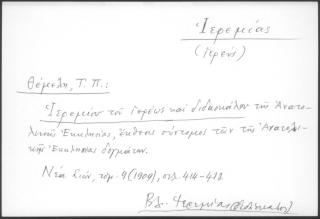 Ἱερεμίας
(Ἱερεύς)
Θέμελη, Τ. Π.:
Ἱερεμίου τοῦ ἱερέως καὶ διδασκάλου τῆς Ἀνατο-
λικῆς Ἐκκλησίας, ἔκθεσις σύντομος τῶν τῆς Ἀνατολι-
κῆς Ἐκκλησίας δογμάτων.
Νέα Σιών, τόμ. 9 (1909), σελ. 414-418.
Βλ.